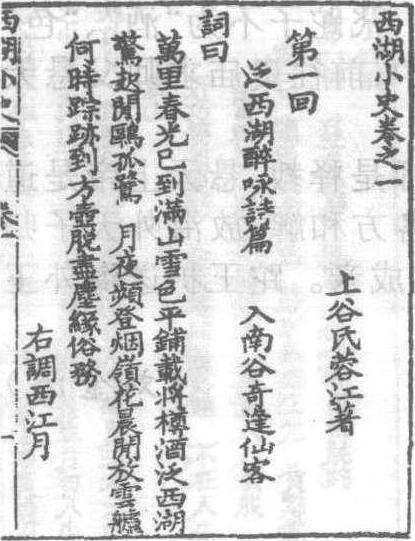 西湖小史卷之一
上谷氏蓉江著
第一回
泛西湖醉咏詩篇 入南谷奇逢仙客
詞曰
萬里春光已到滿山雪色平鋪載將樽酒泛西湖
驚起閒鷗孤鶩 月夜頻登烟嶺花晨開放雲艫
何時踪跡到方壺脫盡塵緣俗務
右調西江月
西湖小史 卷一